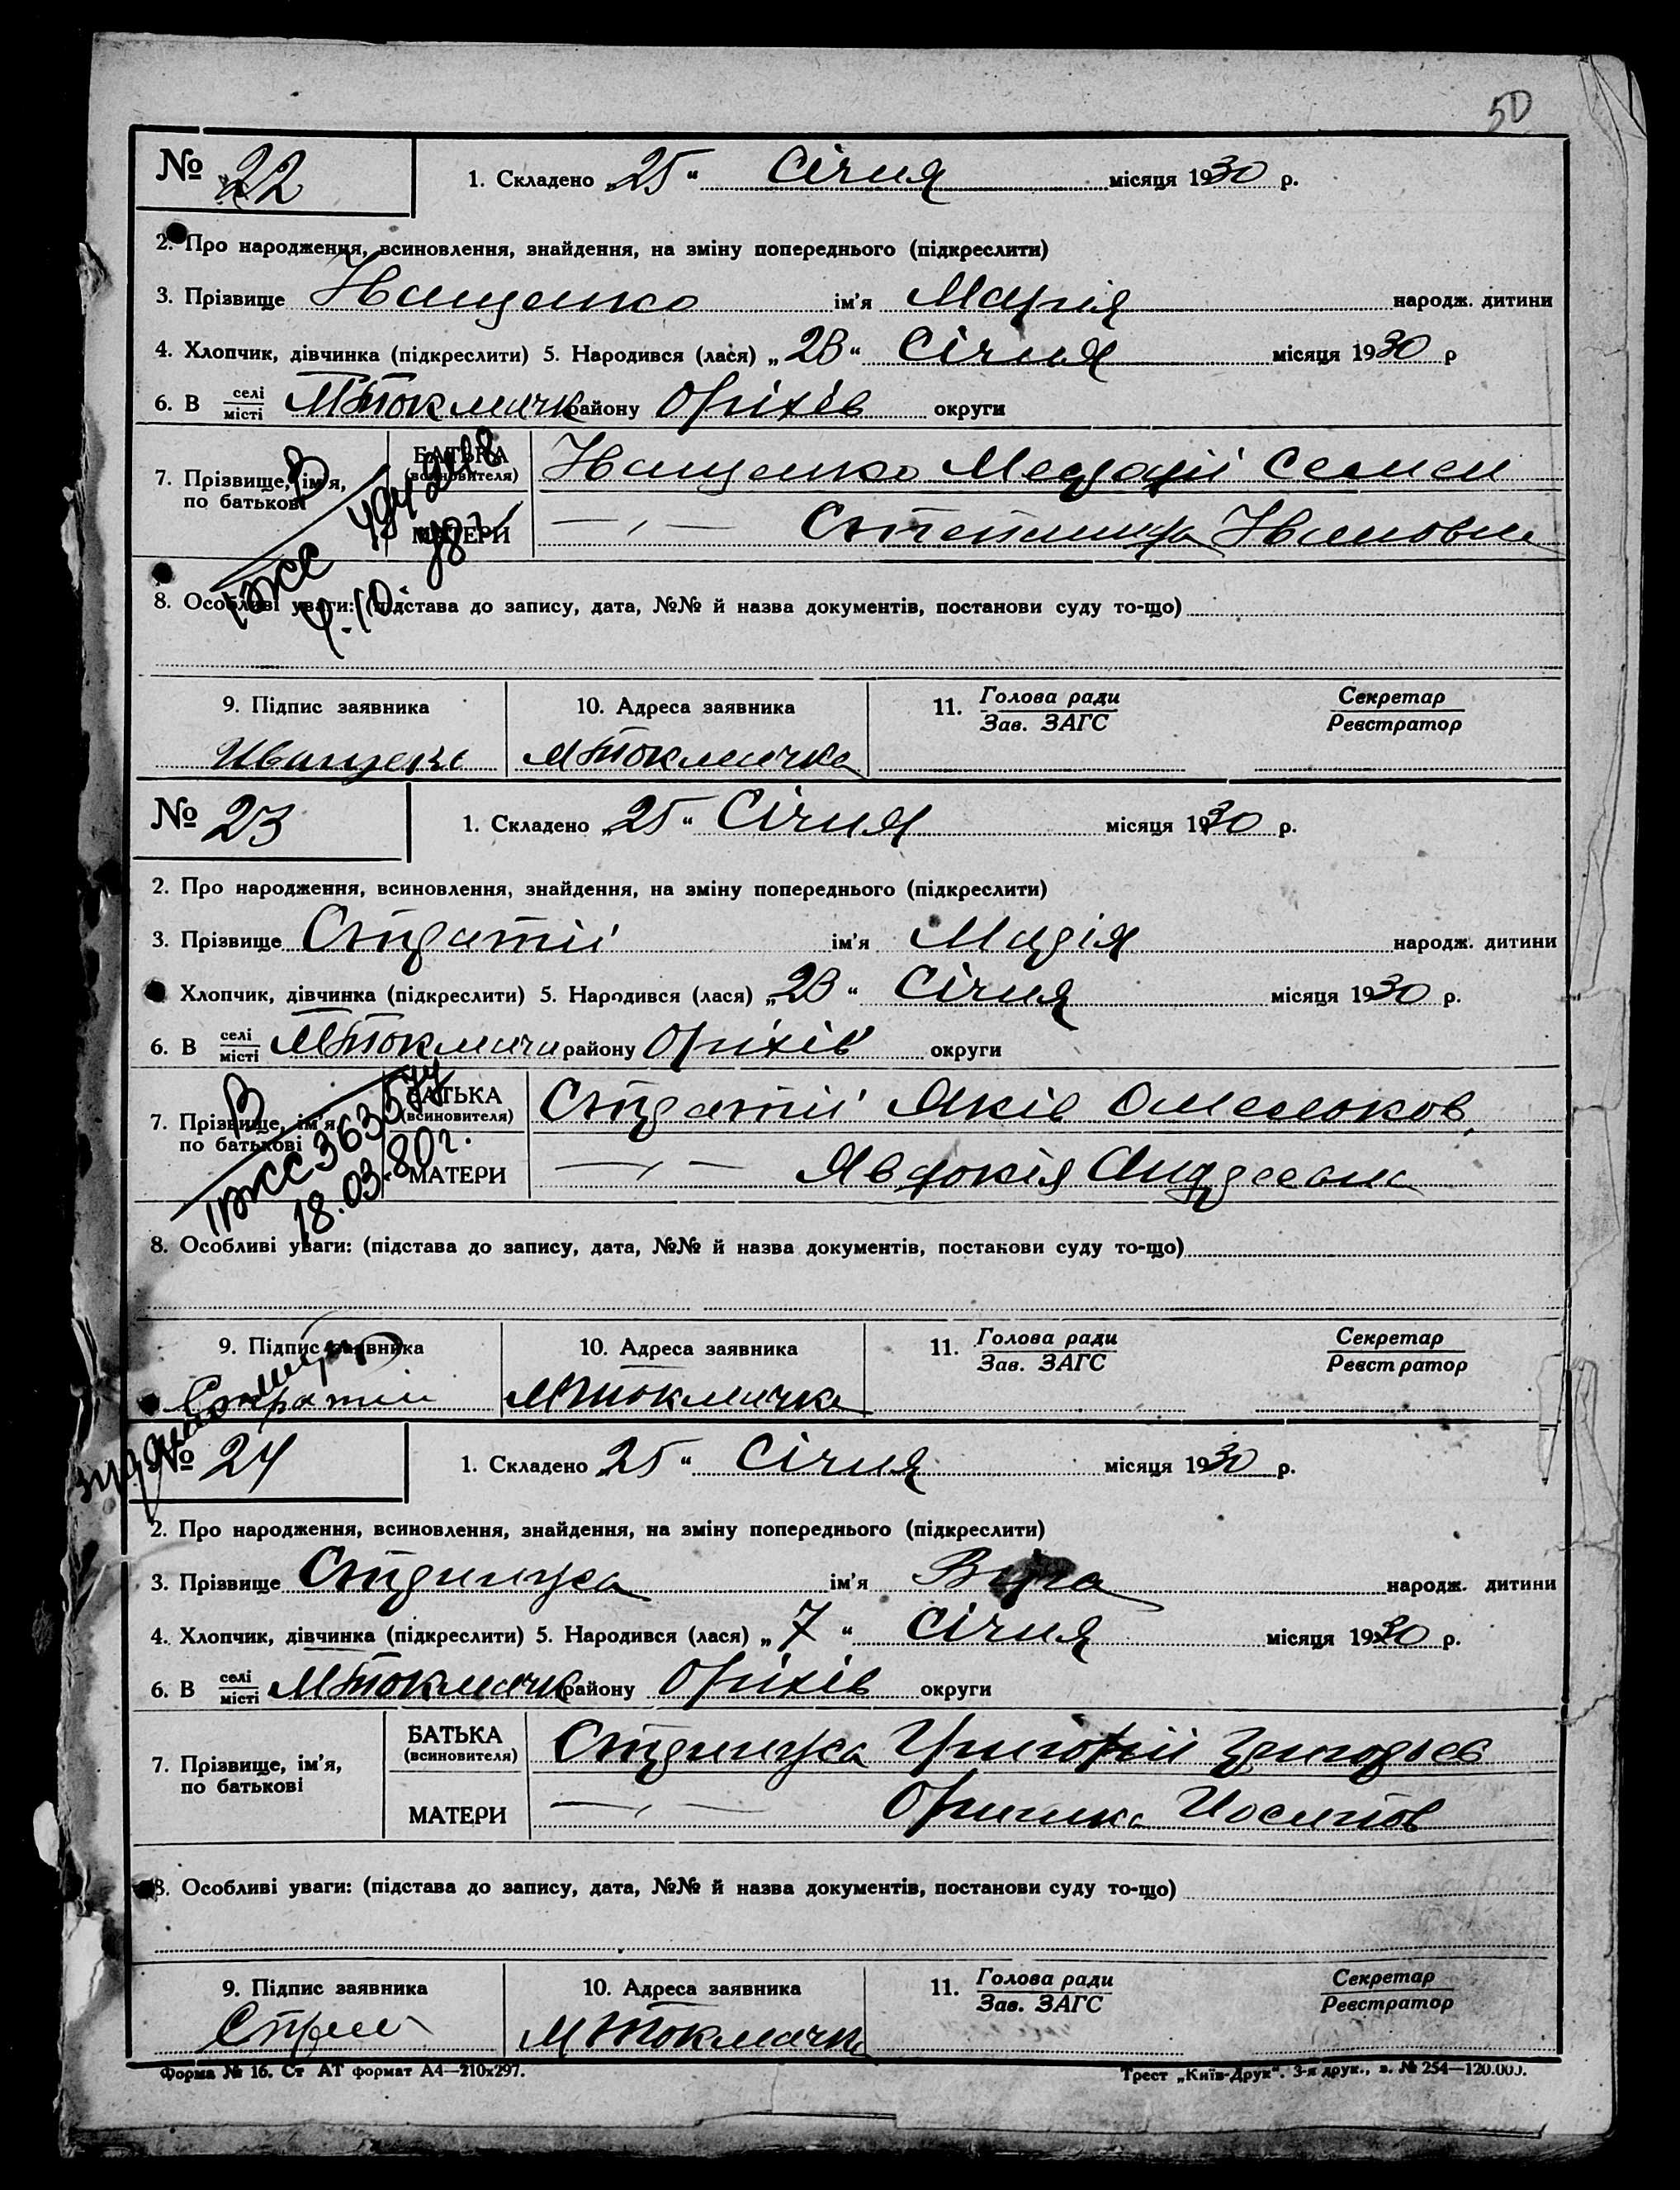 50
№ 22 1. Складено „25“ Січня місяця 1930 р.
2. Про народження, всиновлення, знайдення, на зміну попереднього (підкреслити)
3. Прізвище Іващенко ім'я Марія народж. дитини
4. Хлопчик, дівчинка (підкреслити) 5. Народився (лася) „23“ Січня місяця 1930 р
6. В селі місті МТокмачк району Оріхів округи
7. Прізвище, ім'я, по батькові БАТЬКА (всиновителя) Іващенко Семен
МАТЕРИ —〃— Степанида Івановна
8. Особливі уваги: (підстава до запису, дата, №№ й назва документів, постанови суду то-що)
9. Підпис заявника 10. Адреса заявника 11. Голова ради Зав. ЗАГС Секретар Реєстратор
Иващенк МТокмачка
№ 23 1. Складено „25“ Січня місяця 1930 р.
2. Про народження, всиновлення, знайдення, на зміну попереднього (підкреслити)
3. Прізвище Стратій ім'я Марія народж. дитини
Хлопчик, дівчинка (підкреслити) 5. Народився (лася) „23“ Січня місяця 1930 р.
6. В селі місті МТокмачк району Оріхів округи
7. Прізвище, ім'я, по батькові БАТЬКА (всиновителя) Стратій Яків
МАТЕРИ —〃— Явдокія
363577
18.03.80г.
8. Особливі уваги: (підстава до запису, дата, №№ й назва документів, постанови суду то-що)
9. Підпис заявника 10. Адреса заявника 11. Голова ради Зав. ЗАГС Секретар Реєстратор
Стратій МТокмачка
№ 24 1. Складено „25“ Січня місяця 1930 р.
2. Про народження, всиновлення, знайдення, на зміну попереднього (підкреслити)
3. Прізвище Стринжа ім'я Віра народж. дитини
4. Хлопчик, дівчинка (підкреслити) 5. Народився (лася) „7“ Січня місяця 1930 р.
6. В селі місті МТокмачк району Оріхів округи
7. Прізвище, ім'я, по батькові БАТЬКА (всиновителя) Стринжа Григорій Григорьев
МАТЕРИ —〃— Оришка Иосипов
8. Особливі уваги: (підстава до запису, дата, №№ й назва документів, постанови суду то-що)
9. Підпис заявника 10. Адреса заявника 11. Голова ради Зав. ЗАГС Секретар Реєстратор
МТокмачка
Форма № 16. Ст АТ формат А4—210x297. Трест „Київ-Друк“. 3-я друк., з. № 254—120.000.